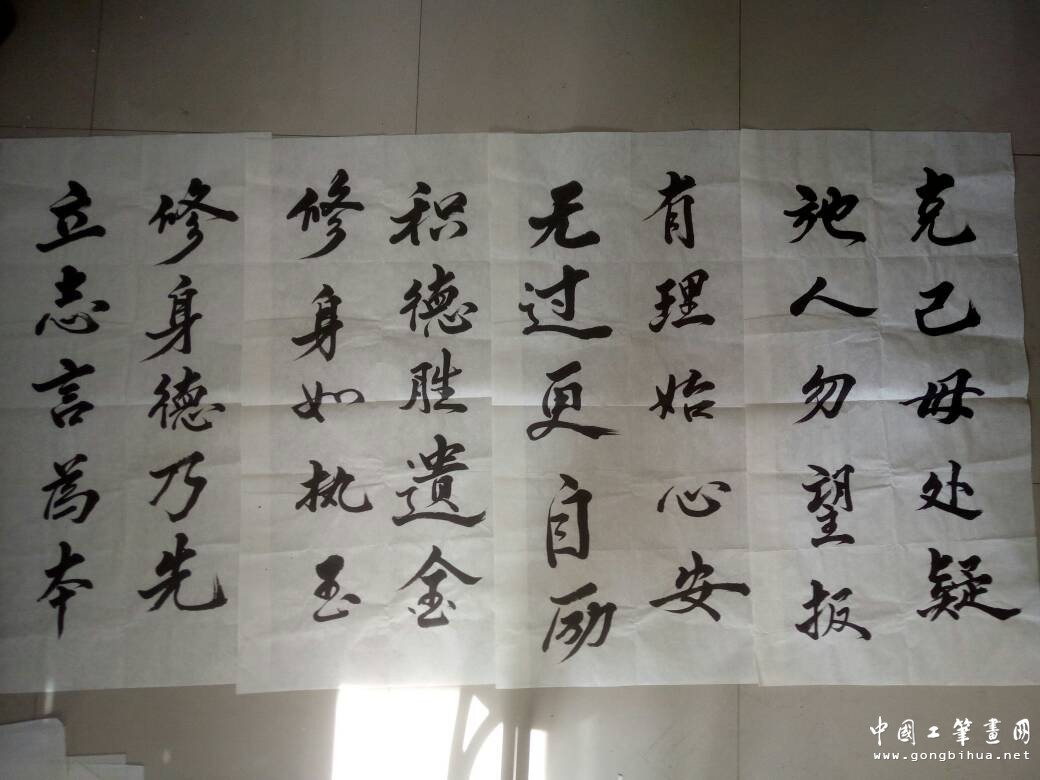 克己毋处疑
施人勿望报
有理始心安
无过更自励
积德胜遗金
修身如执玉
修身德乃先
立志言为本
中國工筆畫网
www.gongbihua.net